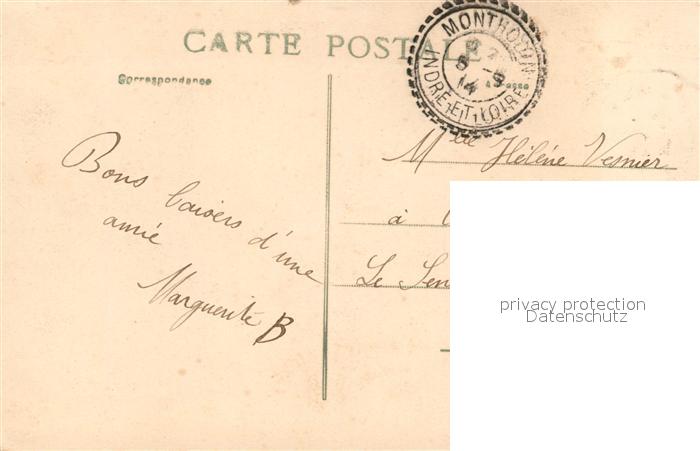 CARTE POSTALE
Correspondance
MONTHODON
INDRE-ET-LOIRE
8 -9
14
Mlle Hélène Vesnier
Bons baisers d'une
amie
Marguerite B
à
Le
privacy protection
Datenschutz